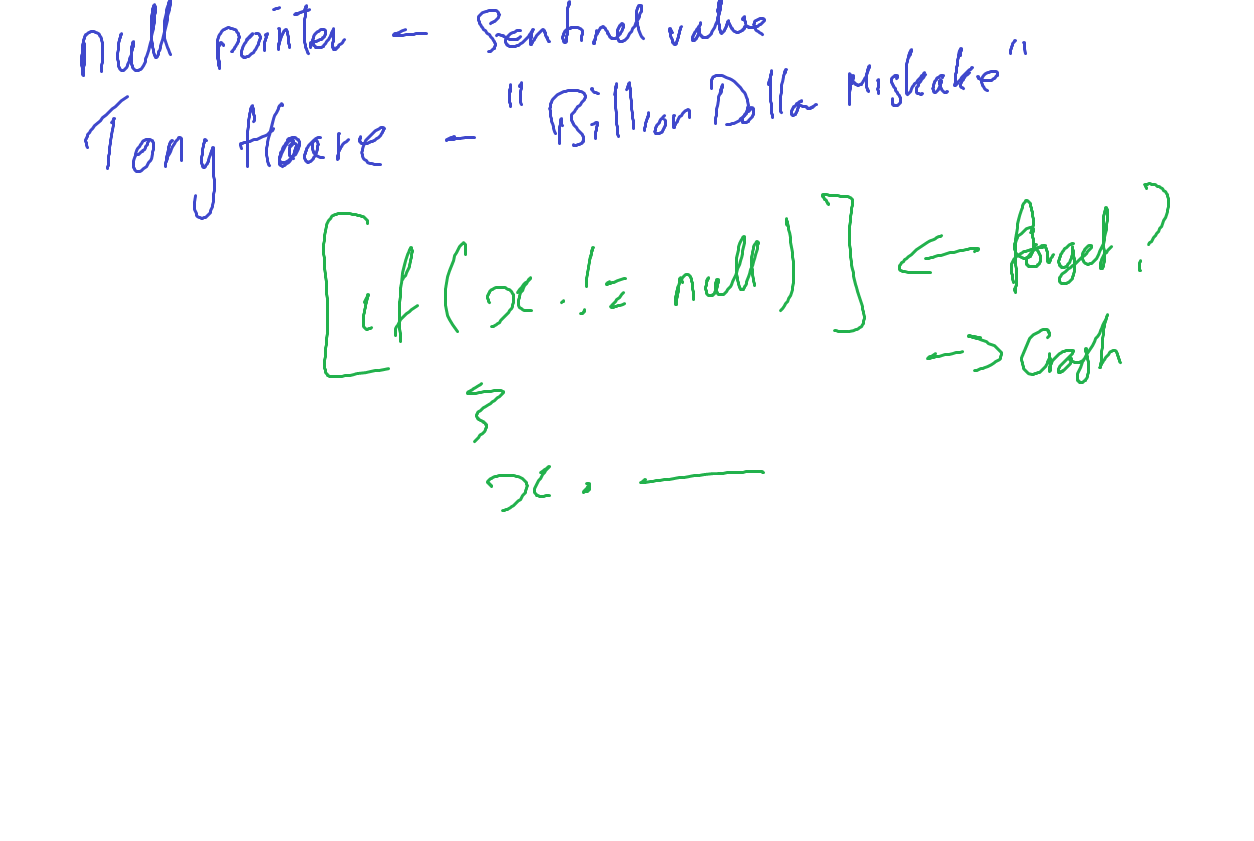 null pointer - Sentinel value
Tony Hoare - "Billion Dollar Miskake"
[if (x != null)] <- forget?
-> Crash
{
x. —